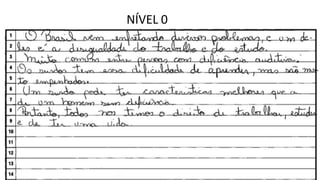 NÍVEL 0
1 O Brasil vem enfretando diversos problemas, e um de-
2 les e' a desigualdade do trabalho e do estudo.
3 Muito comum entre pessoas com dificiência auditiva.
4 Os surdos tem essa dificuldade de aprender, mas são mui-
5 to empenhados.
6 Um surdo pode ter caracteristicas melhores que a
7 de um homem sem deficiência.
8 Portanto, todos nos temos o direito de trabalhar, estudar
9 e de ter uma vida.
10
11
12
13
14